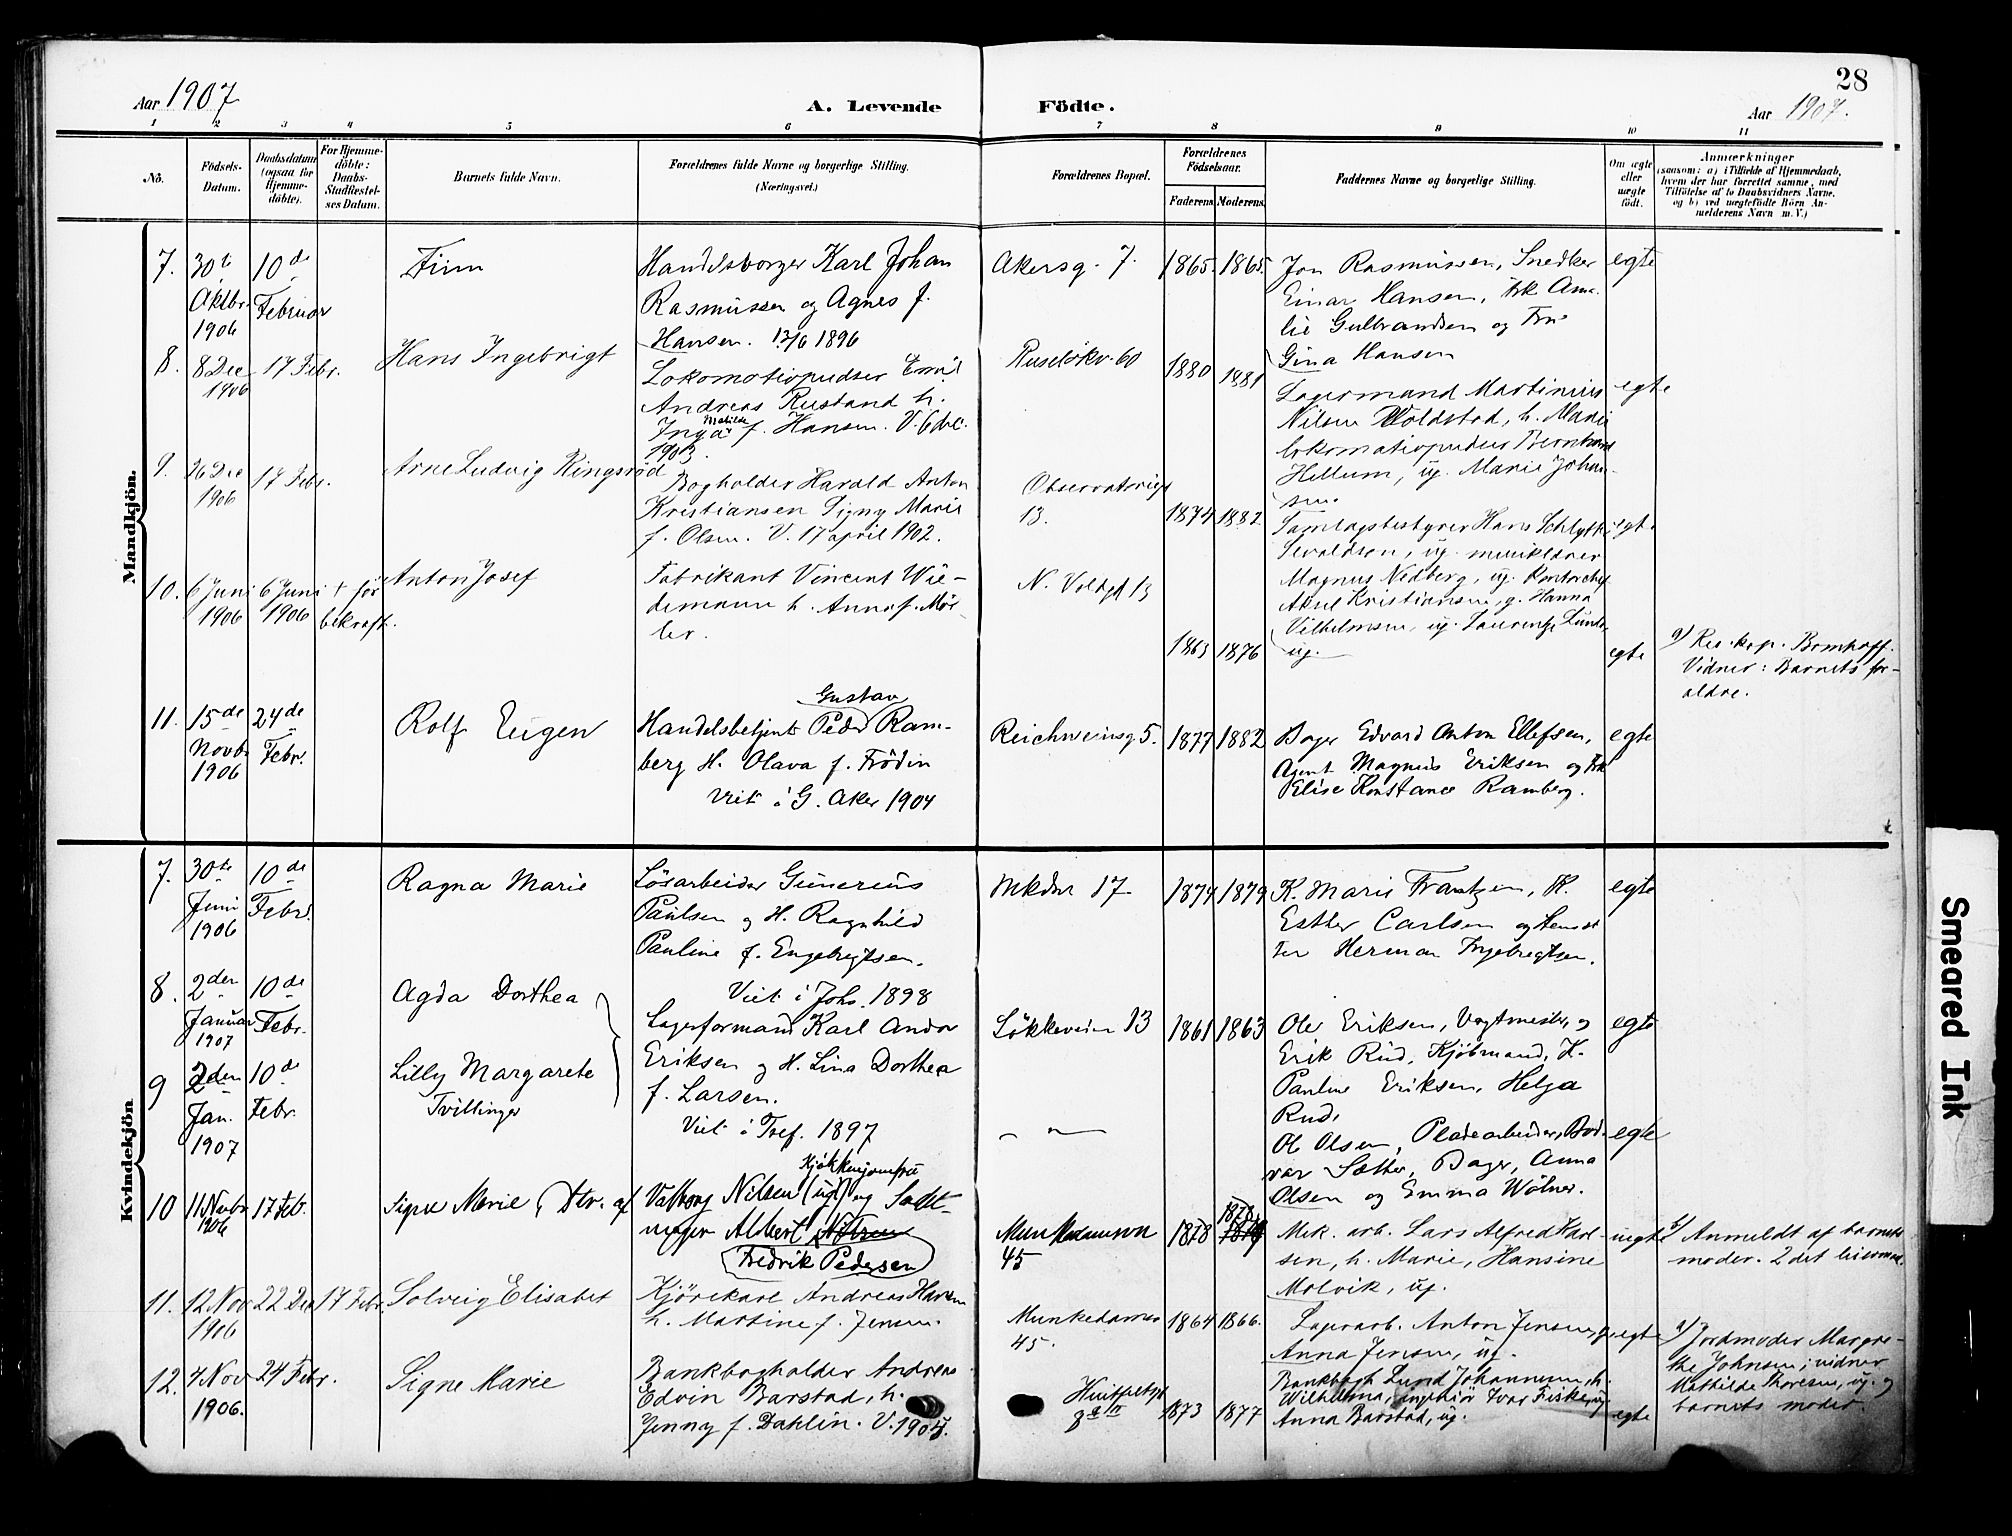 28
Aar 1907
A. Levende
Födte.
Aar 1907.
1 2 3 4 5 6 7 8 9 10 11
No.
Födsels-
Datum.
Daabsdatum
(ogsaa for
Hjemme-
döbte).
For Hjemme-
döbte:
Daabs-
Stadfæstel-
ses Datum.
Barnets fulde Navn.
Forældrenes fulde Navne og borgerlige Stilling.
(Næringsvei.)
Forældrenes Bopæl.
Forældrenes
Födselsaar.
Faderens. Moderens.
Faddernes Navne og borgerlige Stilling.
Om ægte
eller
uægte
födt.
Anmærkninger
(saasom: a) i Tilfælde af Hjemmedaab,
hvem der har forrettet samme, med
Tilföielse af to Daabsvidners Navne,
og b) ved uægtefödte Börn An-
melderens Navn m. V.)
Mandkjön.
7.
30te
Oktbr.
1906
10de
Februar
Finn
Handelsborger Karl Johan
Rasmussen og Agnes f.
Hansen. 13/6 1896
Akersg. 7.
1865. 1865.
Jon Rasmussen, Snedker
Einar Hansen, Frk Ama-
lie Gulbrandsen og Fru
Gina Hansen
egte
8.
8 Dec
1906
17 Febr.
Hans Ingebrigt
Lokomotivpudser Emil
Andreas Rustand h.
Inga Matilde f. Hansen. V. 6 dec.
1903.
Ruselökv. 60
1880 1881
Lagermand Martinius
Nilsen Woldstad, h. Marie
lokomotivpudser Bernhard
Hellum, ug. Marie Johan-
sen.
egte
9.
26 Dec
1906
17 Febr.
Arne Ludvig Ringsröd
Bogholder Harald Anton
Kristiansen Signy Marie
f. Olsen. V. 17 april 1902.
Observatoriegt
13.
1874 1882.
Hans Schlytter
Sevaldsen, ug. musiklærer
Magnus Nedberg, ug. Kontorchef
Aksel Kristiansen, g. Hanna
Vilhelmsen, ug. Laurentze Lund,
ug.
egte
10.
6 Juni
1906
6 Juni
1906
+ för
bekræft.
Anton Josef
Fabrikant Vincent Wie-
demann h. Anna f. Mör-
ler.
N. Voldgt 13
1863 1876
egte
a) Res. kap. Bomhoff.
Vidner: Barnets for-
ældre.
11.
15de
Novbr
1906
24de
Febr.
Rolf Eugen
Gustav
Handelsbetjent Peder Ram-
berg H. Olava f. Frödin
Viet i G. Aker 1904
Reichweinsg 5.
1877 1882
Bager Edvard Anton Ellefsen,
Agent Magnus Eriksen og Frk
Elise Konstance Ramberg.
egte
Kvindekjön
7.
30te
Juni
1906
10de
Febr.
Ragna Marie
Lösarbeider Gunerius
Paulsen og H. Ragnhild
Pauline f. Engebrigtsen.
Viet i Johs. 1898
Mkdvn 17.
1874 1879
K. Marie Frantzen, K.
Esther Carlsen og
Herman Ingebregtsen.
egte
8.
2den
Januar
1907
10de
Febr.
Agda Dorthea
Lagerformand Karl Andor
Eriksen og H. Lina Dorthea
f. Larsen.
Viet i Tref. 1897
Lökkeveien 13
1861 1863
Ole Eriksen, Vagtmester, og
Erik Rud, Kjöbmand, K.
Pauline Eriksen, Helga
Rud.
egte
9
2den
Jan.
1907
10de
Febr.
Lilly Margarete
Tvillinger
— " —
Ole Olsen, Pladearbeider, Bod-
var Sæther, Bager, Anna
Olsen og Emma Wölner.
egte
10
11 Novbr
1906
17 Feb.
Signe Marie, Dtr. af
Kjökkenjomfru
Valborg Nilsen (ugt) og Sadel-
mager Albert Nilsen
Fredrik Pedersen
Munkedamsvn
45
1878 1878
Mek. arb. Lars Alfred Karl-
sen, h. Marie, Hansine
Molvik, ug.
uegte
b) Anmeldt af barnets
moder. 2 det
11.
12 Nov
1906
22 Dec
17 Febr.
Solveig Elisabet
Kjörekarl Andreas Hansen
h. Martine f. Jensen.
Munkedamsv
45.
1864 1866.
Lagerarb. Anton Jensen, g.
Anna Jensen, ug.
egte
a) Jordmoder Margre-
the Johnsen; vidner
Mathilde Thoresen, ug. og
barnets moder.
12.
4 Nov
1906.
24 Febr.
Signe Marie
Bankbogholder Andreas
Edvin Barstad, h.
Jenny f. Dahlin. V. 1905.
Huitfeldtgt
8
1873 1877
Bankbogh. Lund Johannesen, h.
Wilhelmina, ingeniör Ivar Fiske, ug
Anna Barstad, ug.
egte
Smeared Ink